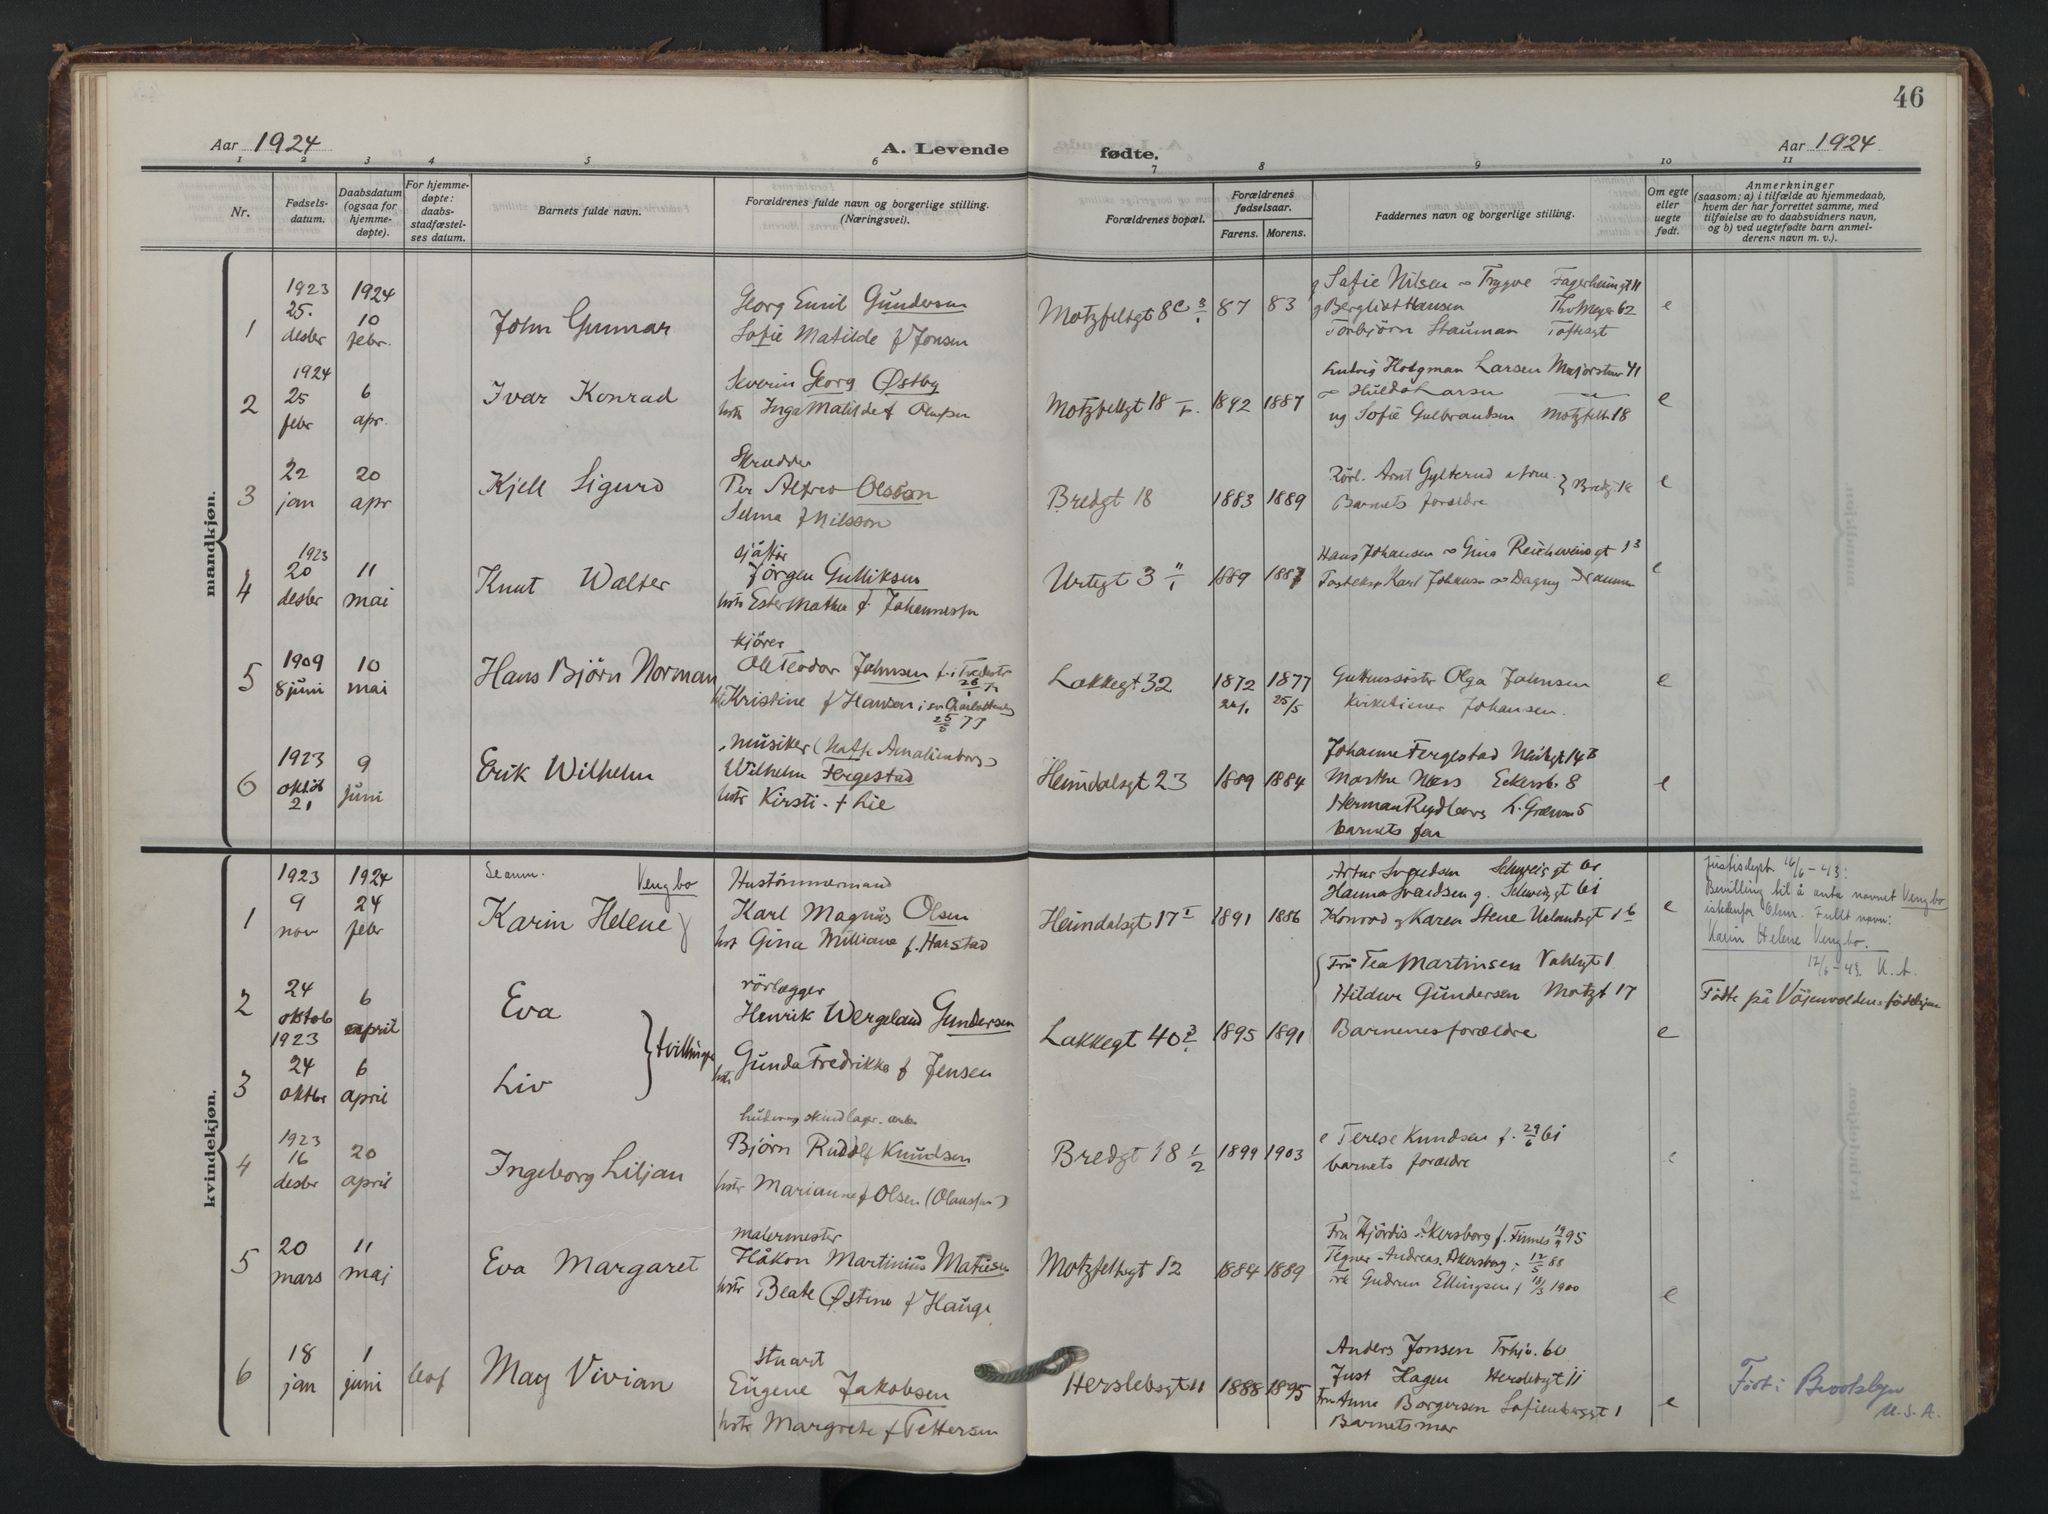 46
Aar 1924
A. Levende
fødte.
Aar 1924
1 2 3 4 5 6 7 8 9 10 11
Nr.
Fødsels-
datum.
Daabsdatum
(ogsaa for
hjemme-
døpte).
For hjemme-
døpte:
daabs-
stadfæstel-
ses datum.
Barnets fulde navn.
Forældrenes fulde navn og borgerlige stilling.
(Næringsvei).
Forældrenes bopæl.
Forældrenes
fødselsaar.
Farens. Morens.
Faddernes navn og borgerlige stilling.
Om egte
eller
uegte
født.
Anmerkninger
(saasom: a) i tilfælde av hjemmedaab,
hvem der har forrettet samme, med
tilføielse av to daabsvidners navn,
og b) ved uegtefødte barn anmel-
derens navn m. v.).
mandkjøn.
1
1923
25.
desbr
1924
10
febr.
John Gunnar
Georg Emil Gundersen
Sofie Matilde f Jonsen
Motzfeltsgt 8c
87
83
Sofie Nilsen
Trygve Fagerheimgt 11
Bergliot Hansen Thv Meyer 62
Torbjørn Stauman Toftesgt
e
2
1924
25
febr
6
apr.
Ivar Konrad
Severin Georg Østby
hstr Inga Matilde f Olufsen
Motzfeltgt 18
1892
1887
Ludvig Hotgman Larsen Majorstuv 41
Hulda Larsen
og Sofie Gulbrandsen Motzfeltt 18
e
3
22
jan
20
apr
Kjell Sigurd
Skrædder
Per Alfred Olsson
Selma f Nilsson
Bredgt 18
1883
1889
Rørl. Arnt Gylterud
Barnets forældre
e
4
1923
20
desbr
11
mai
Knut Walter
sjåfør
Jørgen Gulliksen
hstr Ester Mathea f. Johannessen
Urtegt 3
1889
1887
Hans Johansen Gina Reichweinsgt 13
Karl Johansen Dagny Drammen
e
5
1909
8 juni
10
mai
Hans Bjørn Norman
kjører
Ole Teodor Johnsen
Kristine f Hansen
Lakkegt 32
1872
1877
25/5
Olga Johnsen
Johansen.
e
6
1923
oktob
21
9
juni
Erik Wilhelm
musiker (Kaffe Amalienborg)
Wilhelm Fergestad
hstr Kirsti f Lie
Heimdalsgt 23
1889
1884
Johanne Fergestad
Marthe Næss Eckersb. 8
Herman Rydberg
barnets far
e
kvindekjøn.
1
1923
9
nov
1924
24
febr
Vengbo
Karin Helene
Hustømmermand
Karl Magnus Olsen
hst Gina Milliane f. Harstad
Heimdalsgt 17 I
1891
1886
Artur Svendsen Schweigsgt 61
Hanna Svendsen g. Schweigsgt 61
Konrad og Karen Stene Uelandsgt 16
e
Justisdept. 16/6-43:
Bevilling til å anta navnet Vengbo
istedenfor Olsen. Fullt navn:
Karin Helene Vengbo.
17/6-43. K. A.
2
24
oktob
1923
6
april
Eva
rørlægger
Henrik Wergeland Gundersen
tvillinger
hstr Gunda Fredrikke f Jensen
Lakkegt 40
1895
1891
Fru Tea Martinsen Vahlsgt 1
Hildur Gundersen Motzt 17
Barnenes forældre
e
Født på Vøienvolden fødehjem
3
24
oktbr
6
april
Liv
4
1923
16
desbr
20
april
Ingeborg Liljan
Bjørn Rudolf Knudsen
hstr Marianne f Olsen (Olaussen)
Bredgt 18
1899
1903
Terese Knudsen f. 29/6 61
barnets forældre
e
5
20
mars
11
maj
Eva Margaret
malermester
Håkon Martinius Matisen
hstr Beate Østine f Hauge
Motzfeltsgt 12
1884
1889
Fru Hjördis Akersborg f. Finnes 19/9 95
Tegner Andreas Akersborg 17/5 88
Frk Gudrun Ellingsen f 18/3 1900
e
6
18
jan
1
juni
May Vivian
stuart
Eugene Jakobsen
hstr Margrete f Pettersen
Herslebsgt 11
1888
1895
Anders Jonsen Trhjv. 60
Just Hagen Herslebsgt 11
Fru Anna Borgersen Sofienbergsgt 1
Barnets mor
e
Født i Brooklyn
U. S. A.